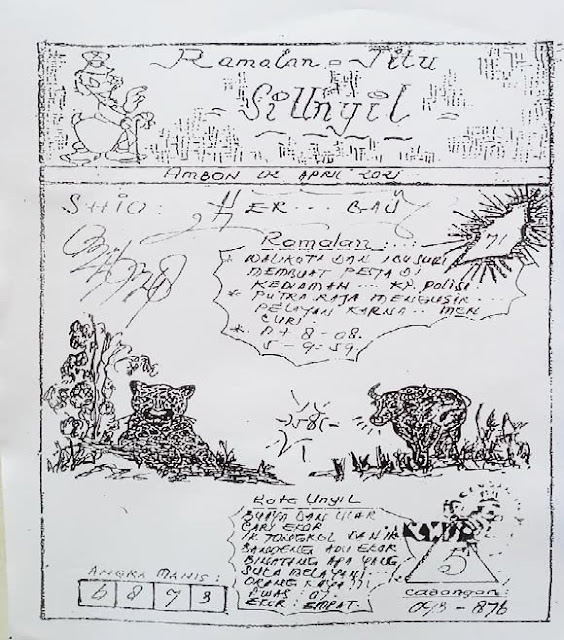 Ramalan - Jitu
Si Unyil
AMBON 02 APRIL 2021
SHIO :
Ramalan
71
* WALIKOTA DAN IBU SURI
MEMBUAT PESTA DI
KEDIAMAN ... KP. POLISI
* PUTRA RAJA MENGUSIR ...
PELAYAN KARNA .. MEN
CURI
* A + 8 - 08.
5 - 9 = 59
Kata Unyil
BUAYA DAN ULAR
CARI EKOR
IK TONGKOL DAN IK
BANDENG ADU EKOR
BINATANG APA YANG
SUKA MELAYANI
ORANG KAYA ???
EKOR : EMPAT.
ANGKA MANIS :
6 8 7 3
5
CADANGAN :